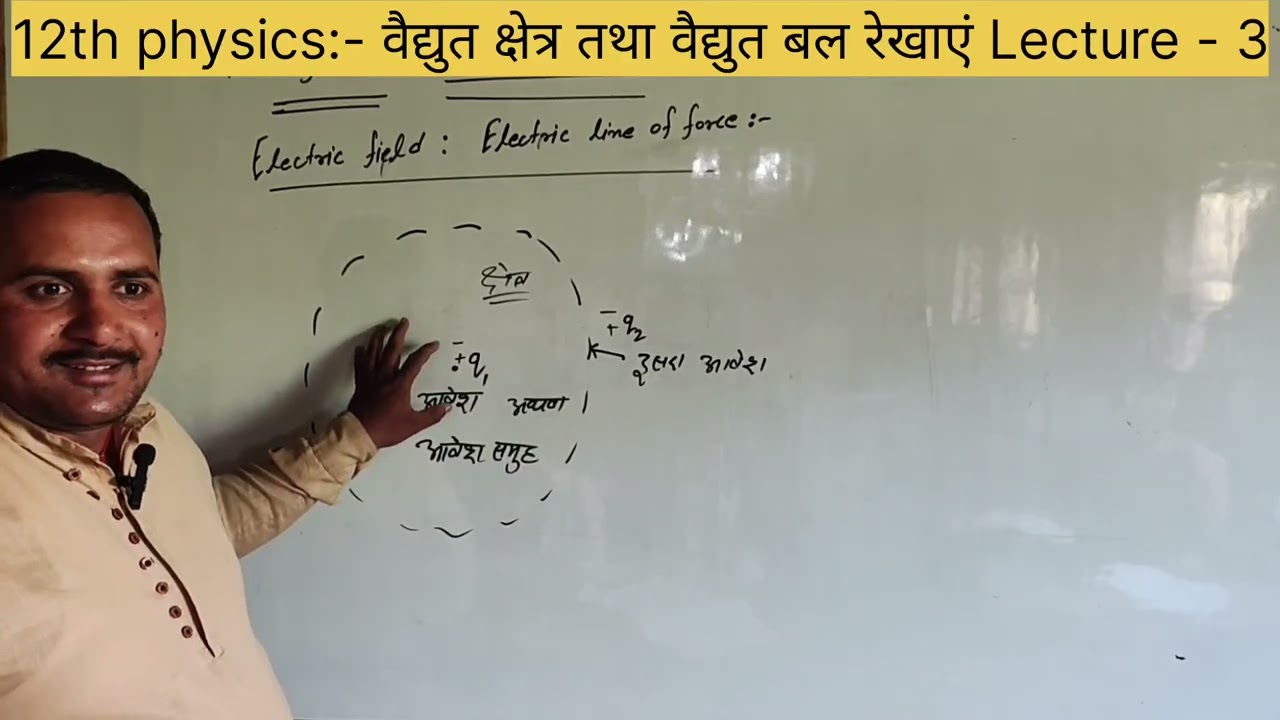 12th physics:- वैद्युत क्षेत्र तथा वैद्युत बल रेखाएं Lecture - 3
Electric field : Electric line of force :-
क्षेत्र
∓ q₂
दूसरा आवेश
∓ q₁
आवेश
आवेश समुह